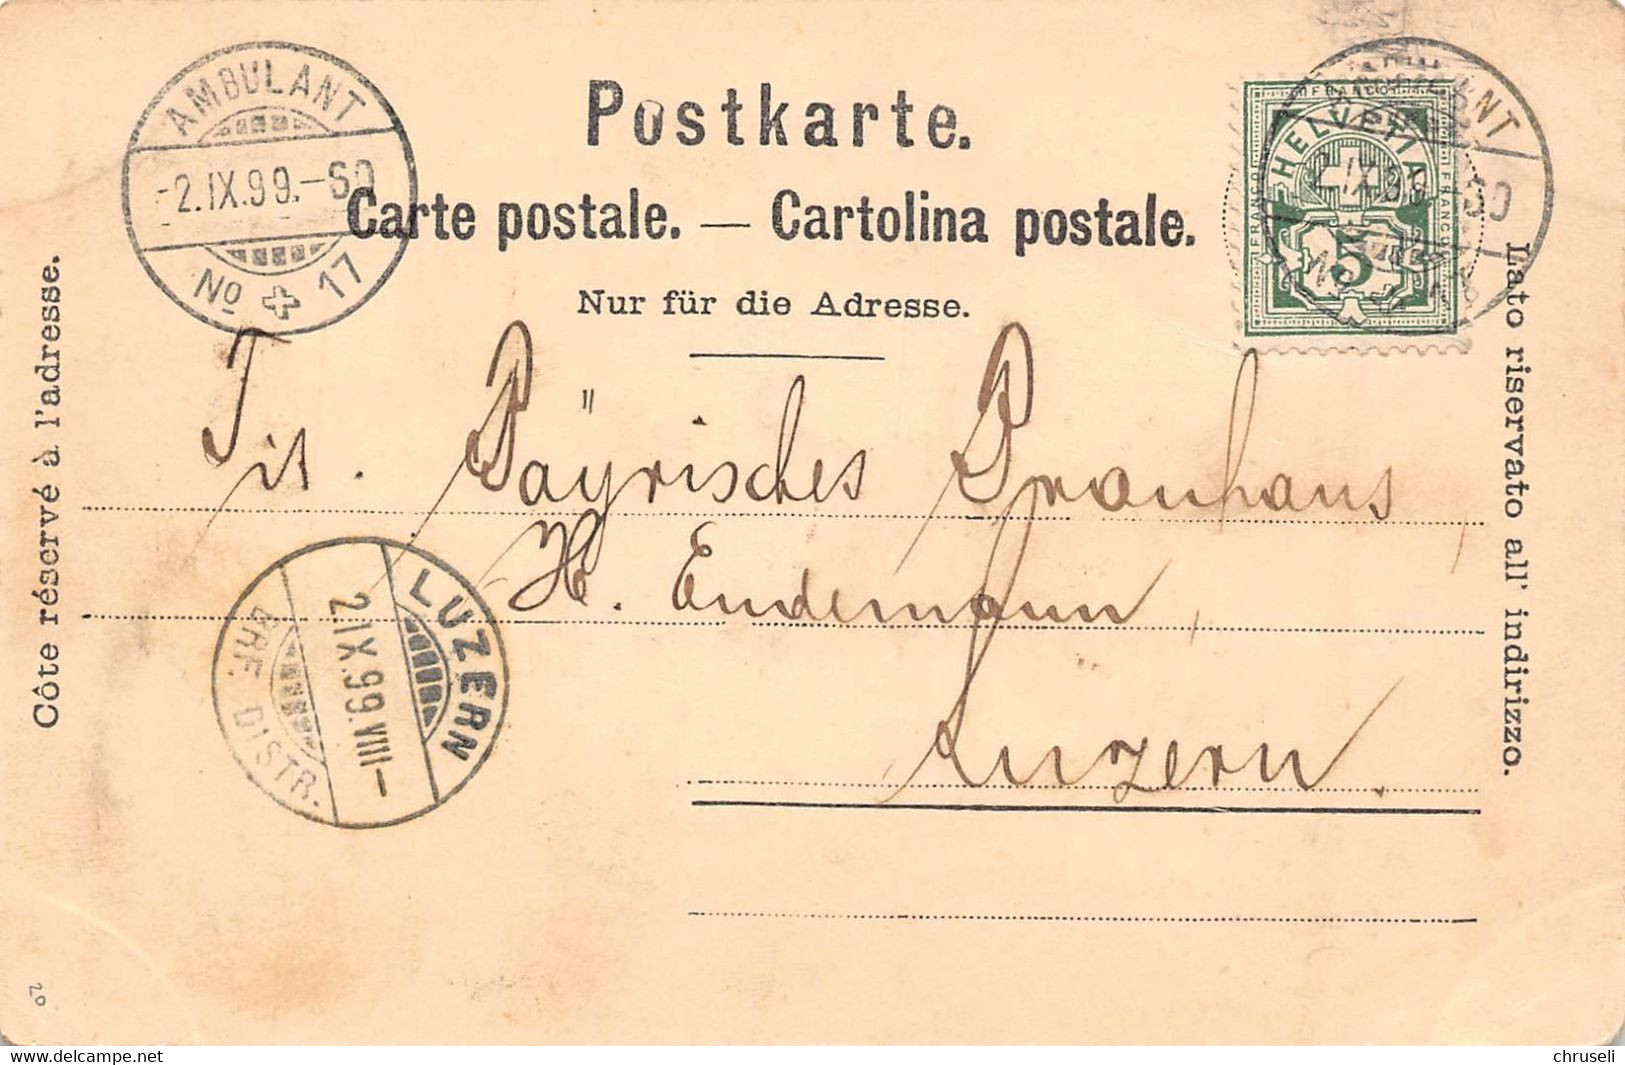 AMBULANT
-2.IX.99.-60
No 17
Postkarte.
Carte postale. — Cartolina postale.
Nur für die Adresse.
FRANCO
HELVETIA
FRANCO
FRANCO
5
2.IX.99.-60
Côte réservé à l'adresse.
Lato riservato all' indirizzo.
Tit. Bäyrisches Brauhaus,
H. Endemann,
Luzern.
LUZERN
2.IX.99.VIII-
BRF. DISTR.
20
www.delcampe.net
chruseli